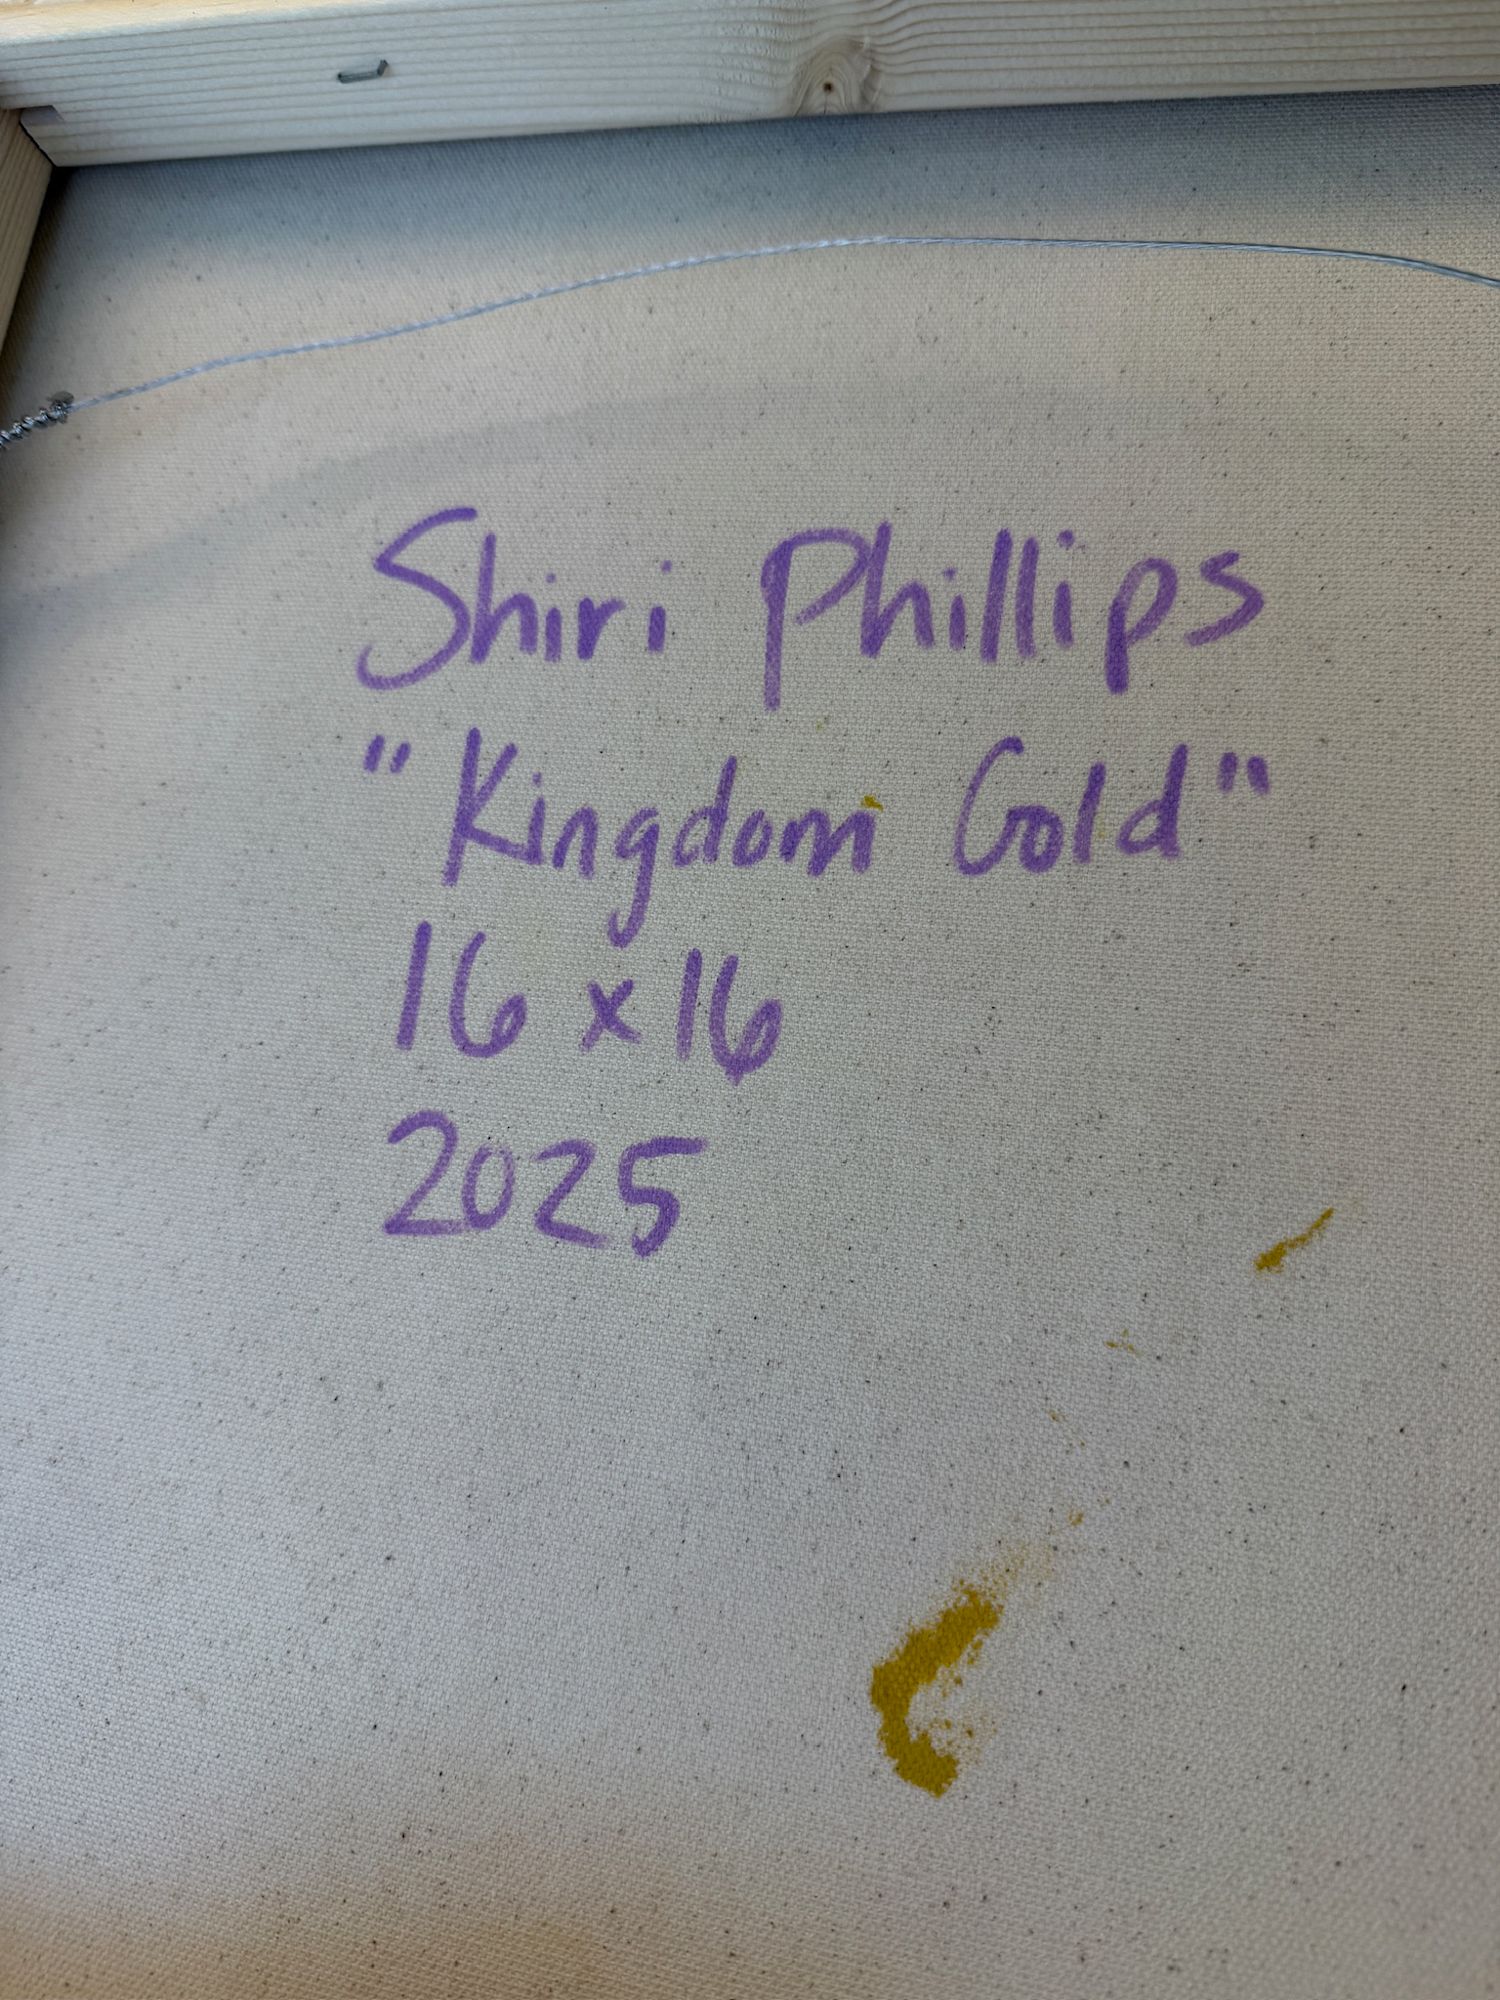 Shiri Phillips
"Kingdom Gold"
16 x 16
2025